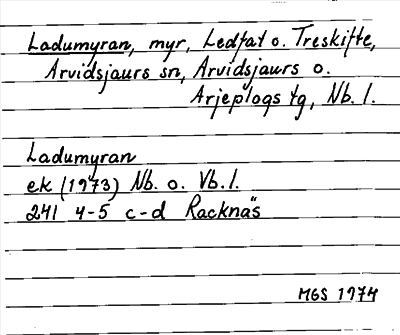 Ladumyran, myr, Ledfat o. Treskifte,
Arvidsjaurs sn, Arvidsjaurs o.
Arjeplogs tg, Nb. l.
Ladumyran
ek (1973) Nb. o. Vb. l.
241 4-5 c-d Racknäs
MGS 1974